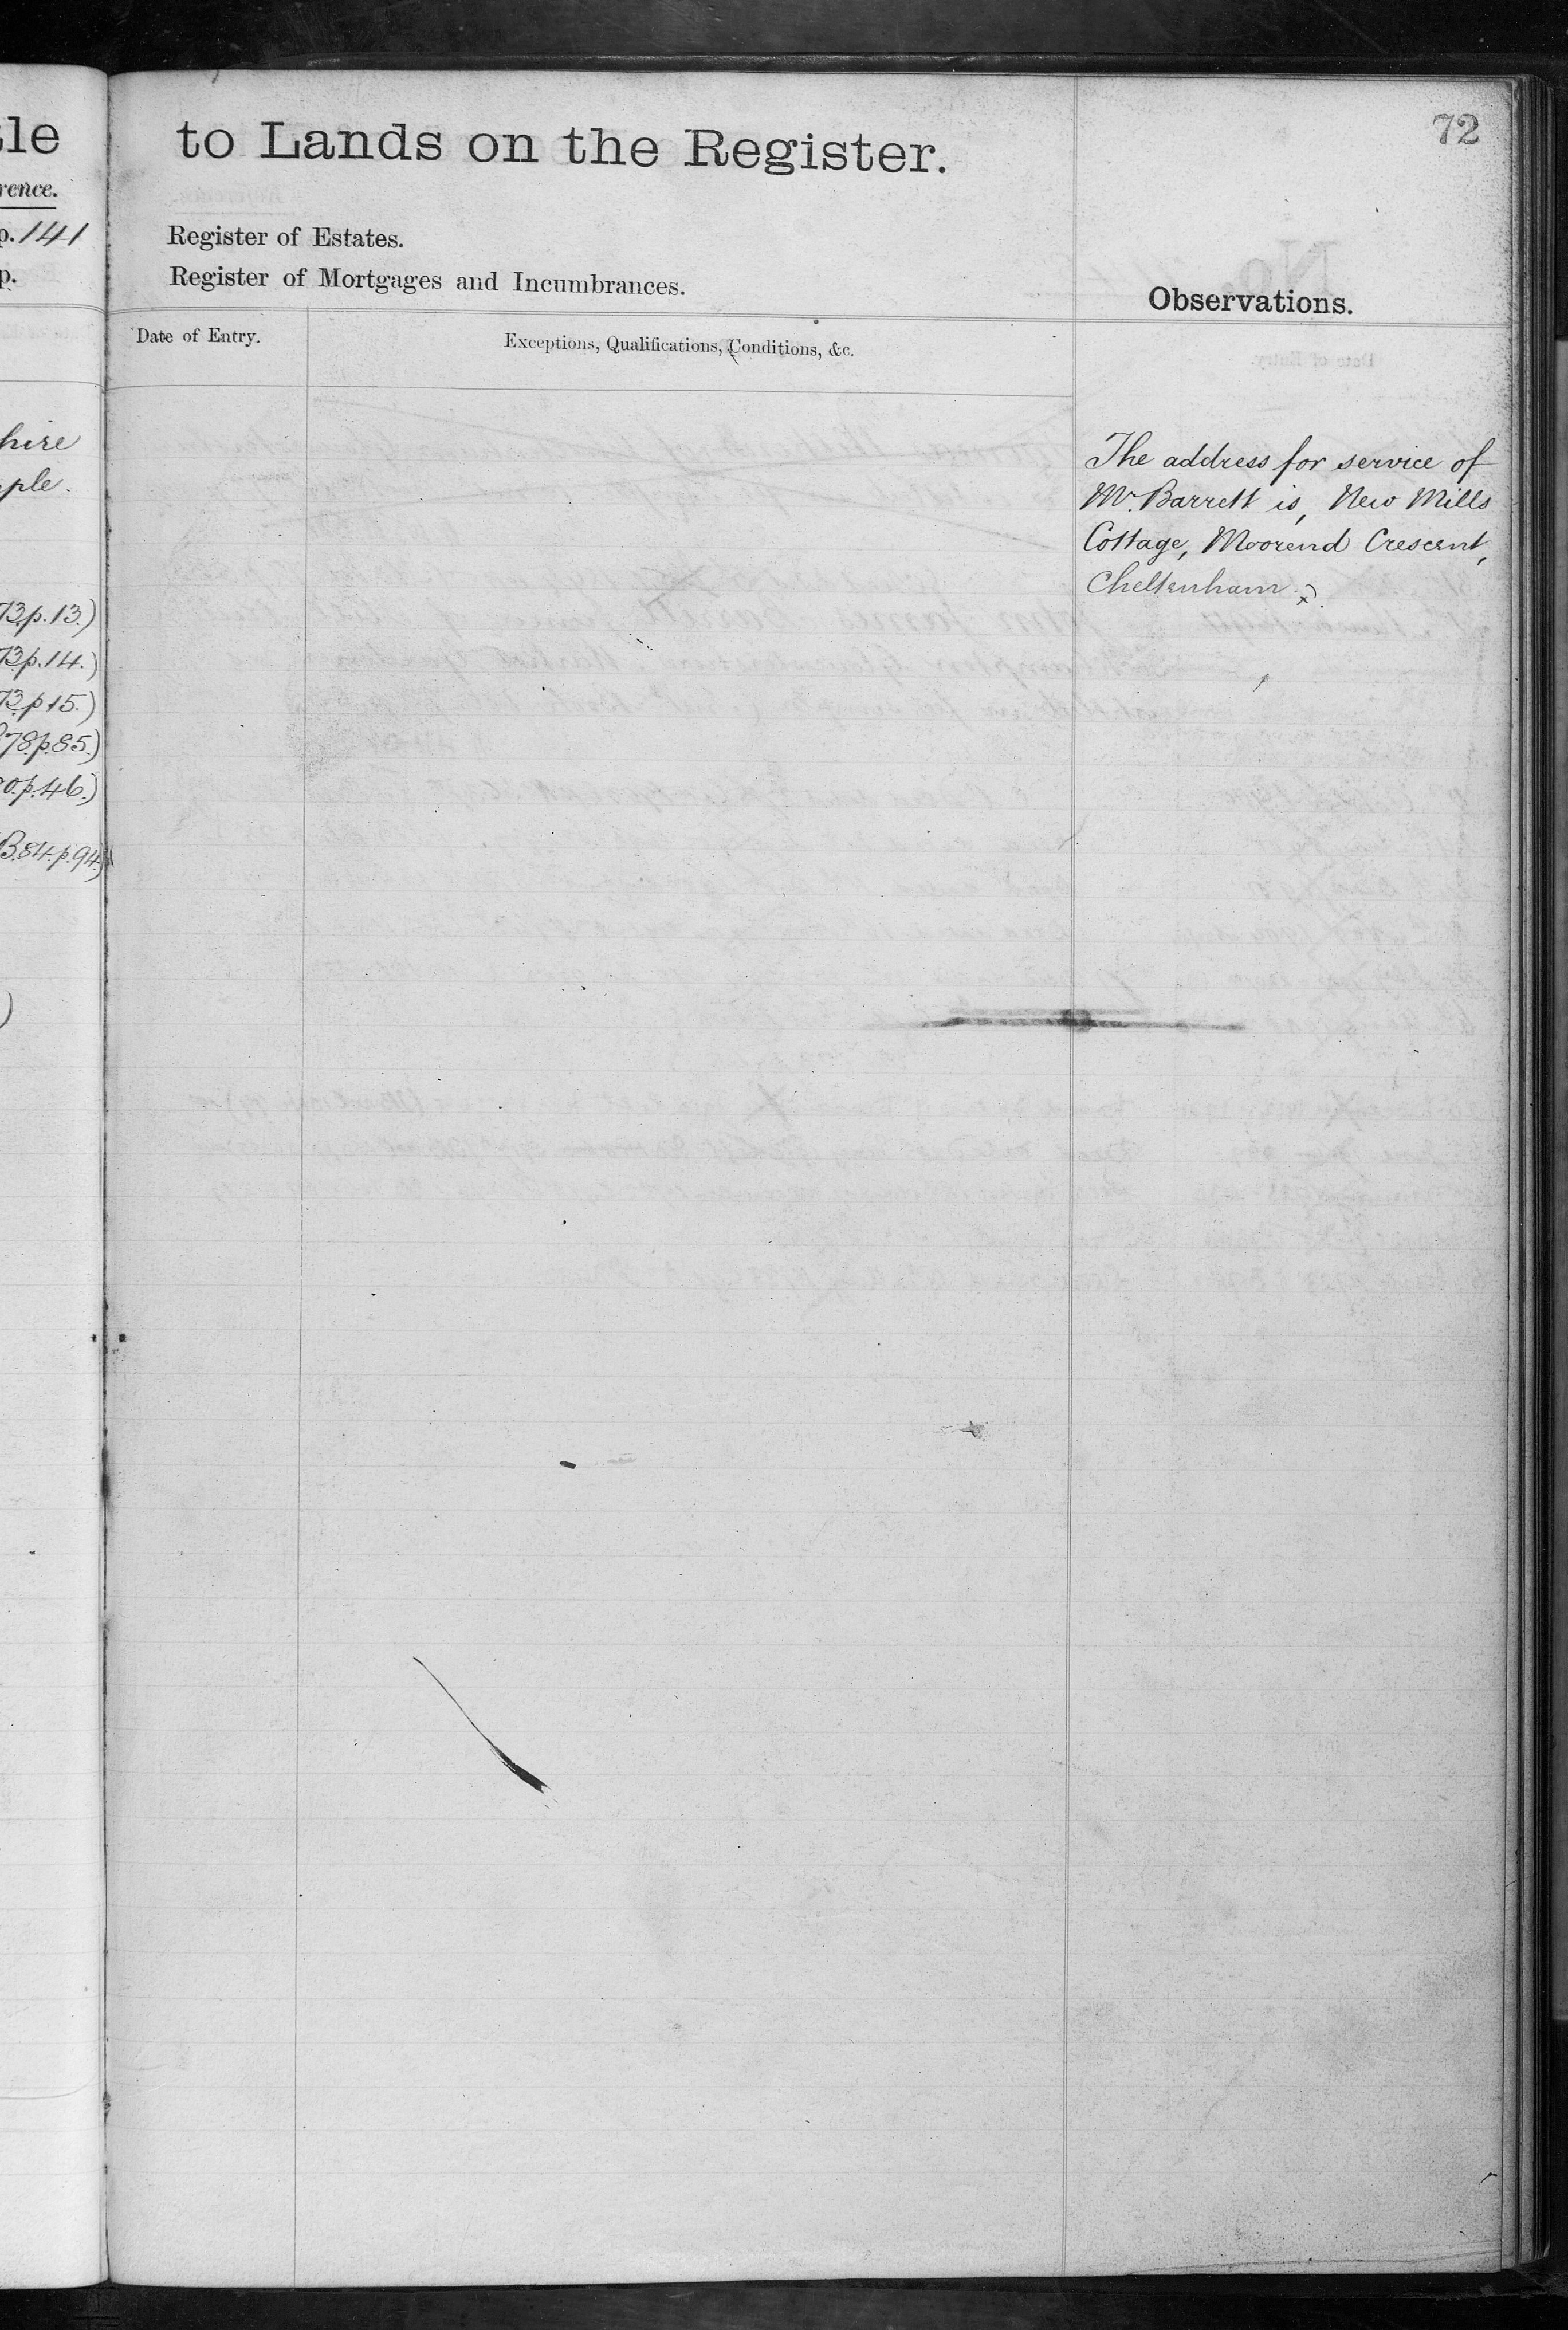 72
to Lands on the Register.
Register of Estates.
Register of Mortgages and Incumbrances.
Observations.
Date of Entry.
Exceptions, Qualifications, Conditions, &c.
The address for service of
Mr. Barrett is, New Mills
Cottage, Moorend Crescent,
Cheltenham.
tle
rence.
p. 141
p.
hire
ple.
73p.13.)
73p.14.)
73p15.)
78p.85.)
0.p.46.)
B.84.p.94.)
)